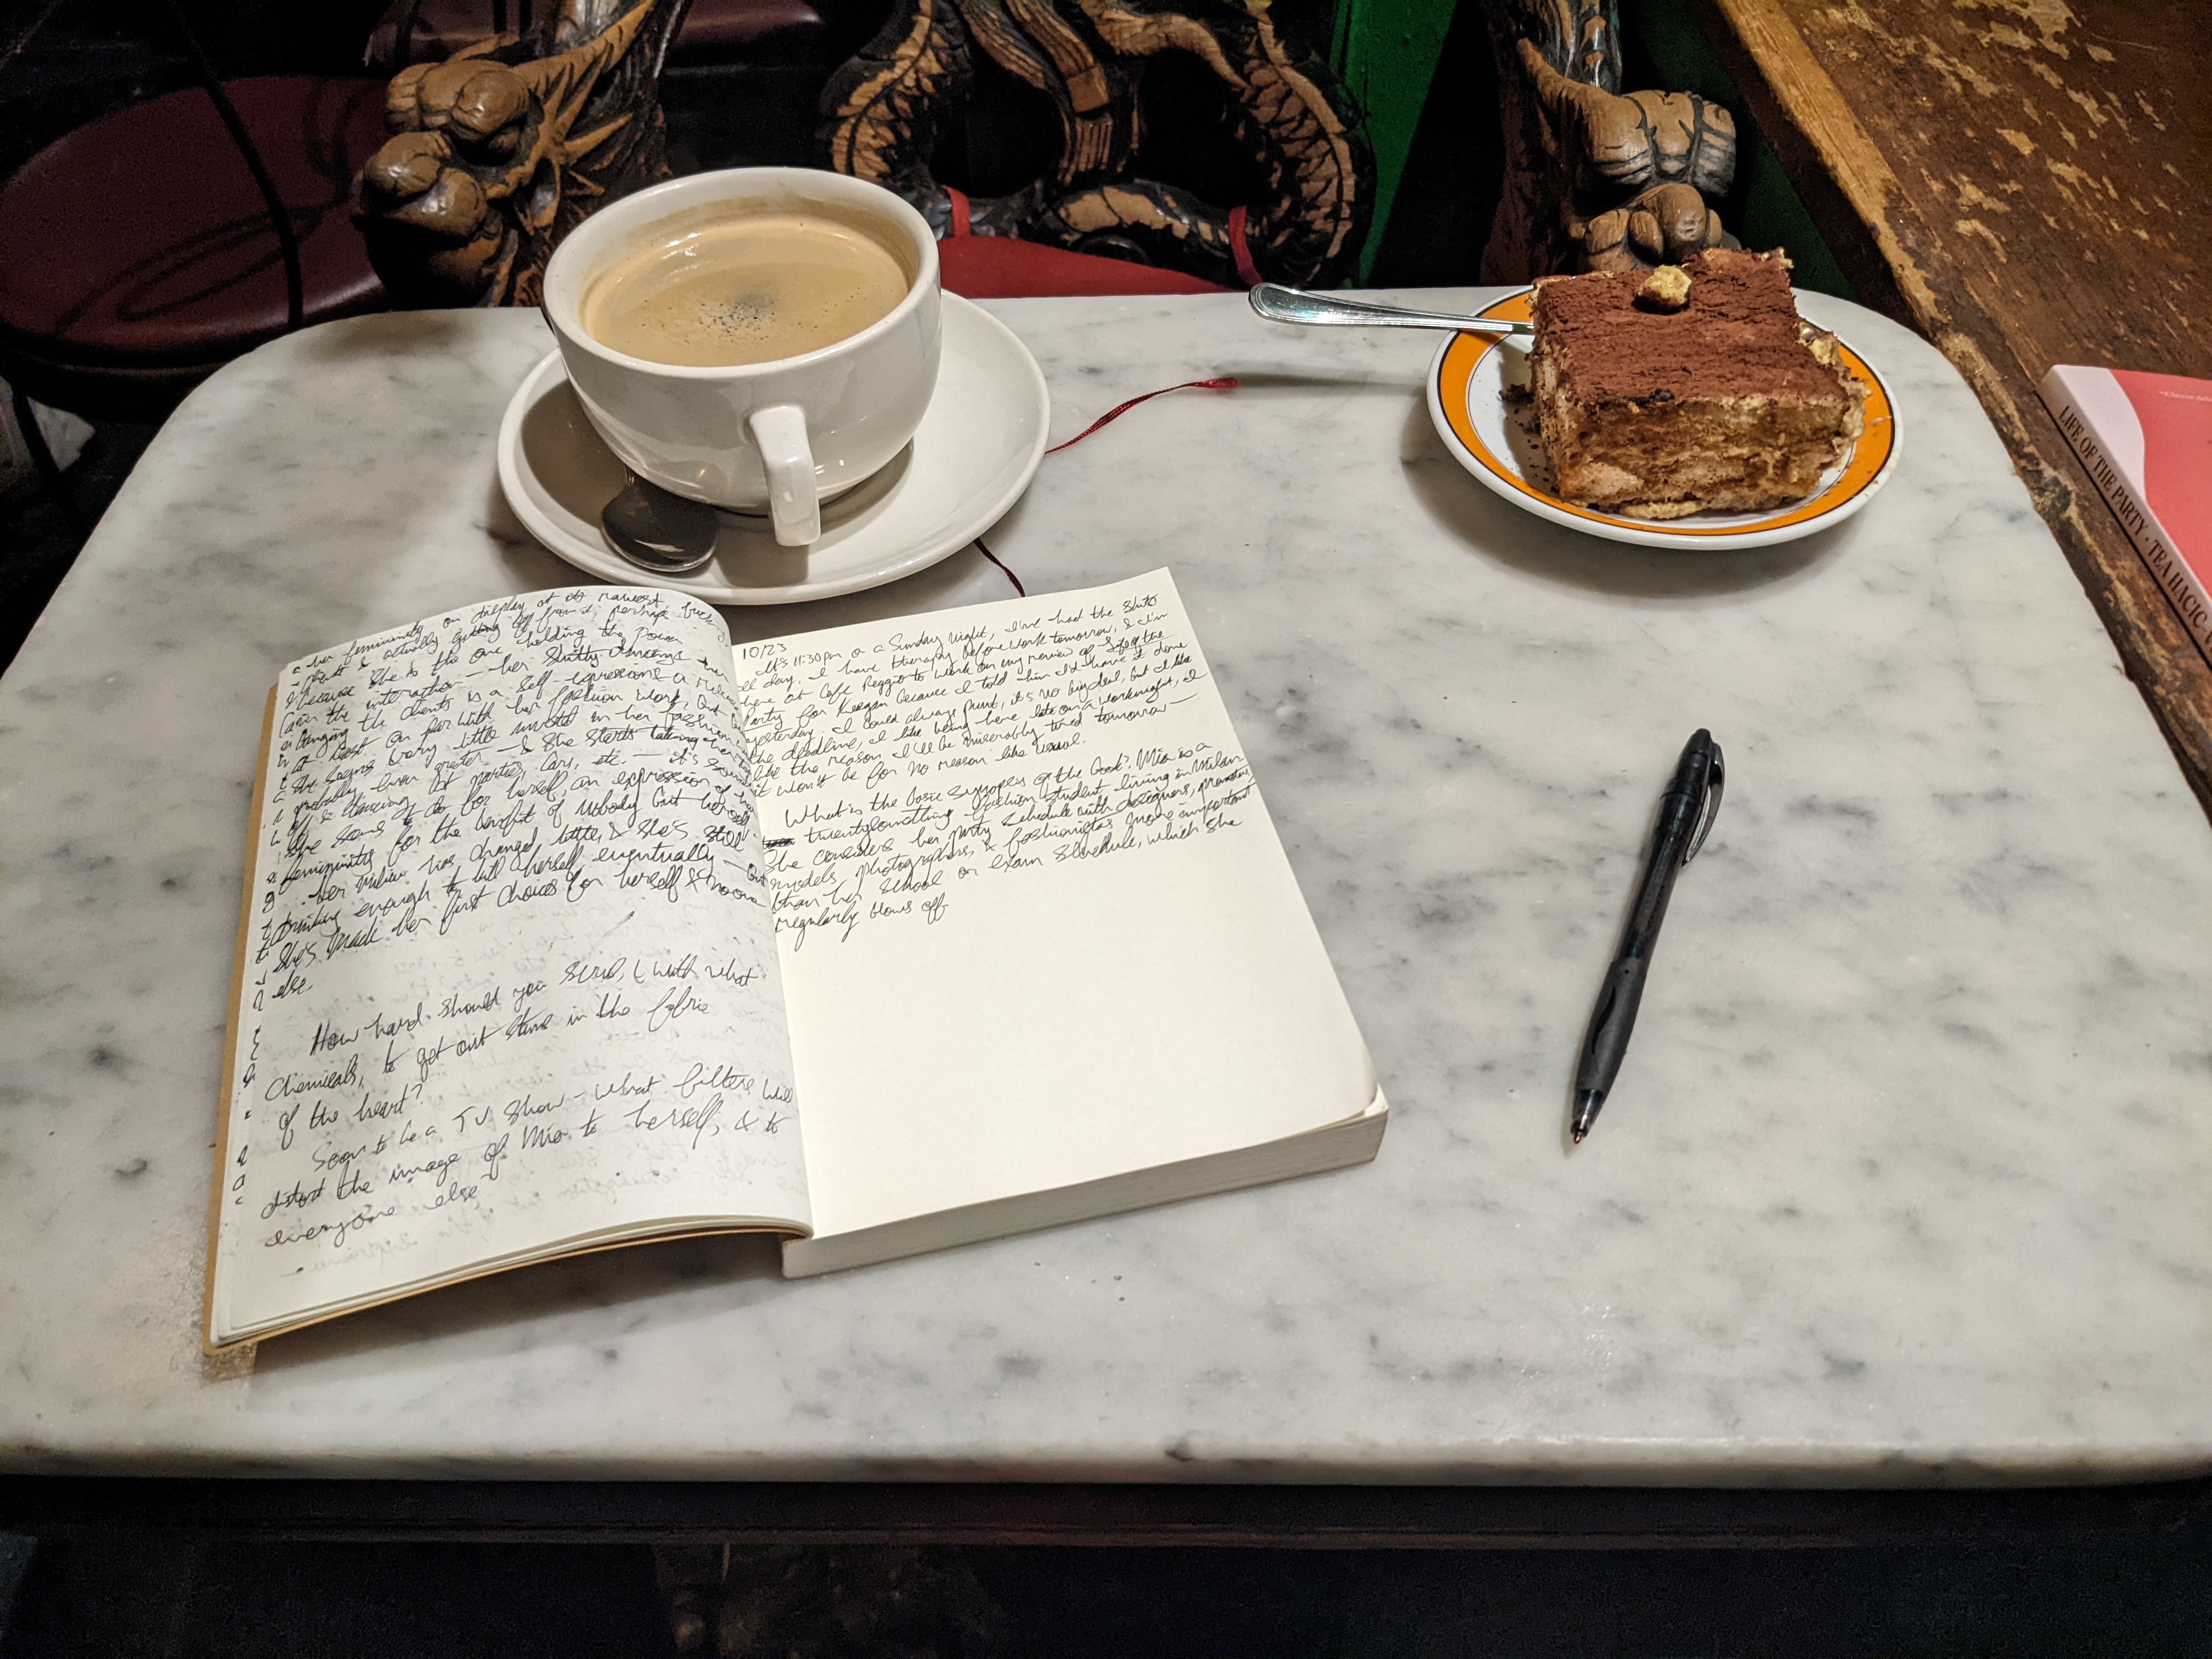 her femininity on display at its rawest
& actually getting off from it, perhaps
because she is the one holding the power
over the interaction — her slutty
the clients is a self-expression
at least on par with her fashion work, but
she seems very little invested in her fashion
probably even greater — & she starts taking
& dancing at parties, cars, etc. — it's
she seems to do for herself, an expression of
femininity for the benefit of nobody but herself.
her milieu has changed little, & she's still
drinking enough to kill herself eventually — but
she's made her first choices for herself & no one
else.
How hard should you scrub, & with what
chemicals, to get out stains in the fabric
of the heart?
Soon to be a TV show — what filters will
distort the image of Mia to herself, & to
everyone else
10/23
It's 11:30pm on a Sunday night, I've had the shits
all day, I have therapy before work tomorrow, & I'm
here at Cafe Reggio to work on my review of Life of the
Party for Keegan because I told him I'd have it done
yesterday. I could always punt, it's no big deal, but I like
the deadline, I like being here late on a worknight, I
like the reason I'll be miserably tired tomorrow —
it won't be for no reason like usual.
What is the basic synopsis of the book? Mia is a
twentysomething fashion student living in Milan.
She considers her party schedule with designers, promoters,
models, photographers, & fashionistas more important
than her school or exam schedule, which she
regularly blows off
LIFE OF THE PARTY · TEA HACIC